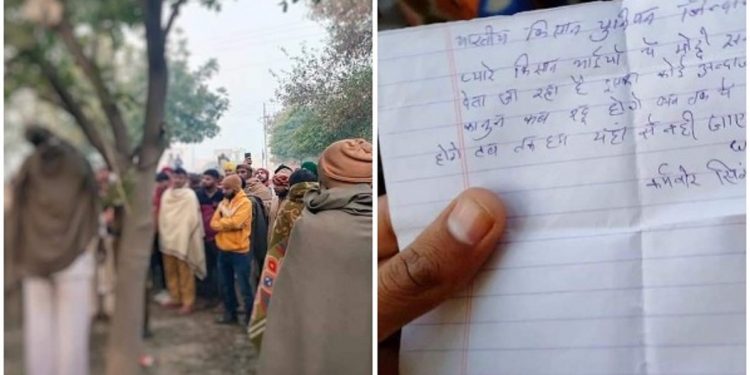 भारतीय किसान युनियन जिन्दा
प्यारे किसान भाईयों ये मोदी स
देता जा रहा है इसका कोई अन्दाज
कानुन कब रद्द होगे जब तक ये
होगे तब तक हम यहां से नही जाए
कर्मवीर सिं